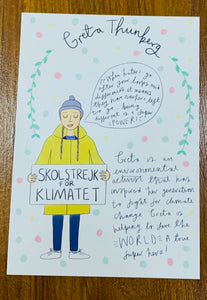 Greta Thunberg
"When haters go
after your looks and
differences it means
they have nowhere left
to go. being
different is a super
POWER!"
SKOLSTREJK
FÖR
KLIMATET
Greta is an
environmental
activist that has
inspired her generation
to fight for climate
change Greta is
helping to save the
WORLD! A true
super hero!